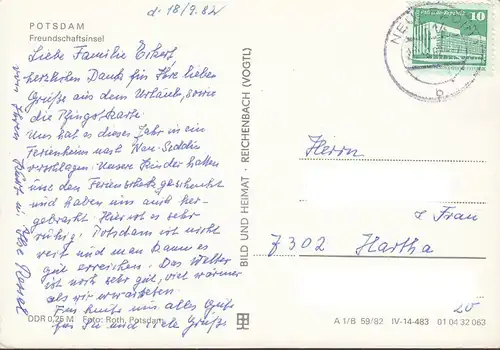 POTSDAM
Freundschaftsinsel
d. 18/9.82
Liebe Familie
herzlichen Dank für Ihre lieben
Grüße aus dem Urlaub, sowie
die
Uns hat es dieses Jahr in ein
Ferienheim nach Neu-Seddin
verschlagen. Unsere Kinder hatten
uns den geschenkt
und haben uns auch her-
gebracht. Hier ist es sehr
ruhig, Potsdam ist nicht
weit und man kann es
gut erreichen. Das Wetter
ist noch sehr gut, viel wärmer
als wir erwarteten.
Für heute nun alles Gute
für Sie und viele Grüße
von Ihren u.
DDR 0,25 M Foto: Roth, Potsdam
BILD UND HEIMAT · REICHENBACH (VOGTL)
10
NEU
b
Herrn
& Frau
7302 Hartha
20
A 1/B 59/82 IV-14-483 01 04 32 063